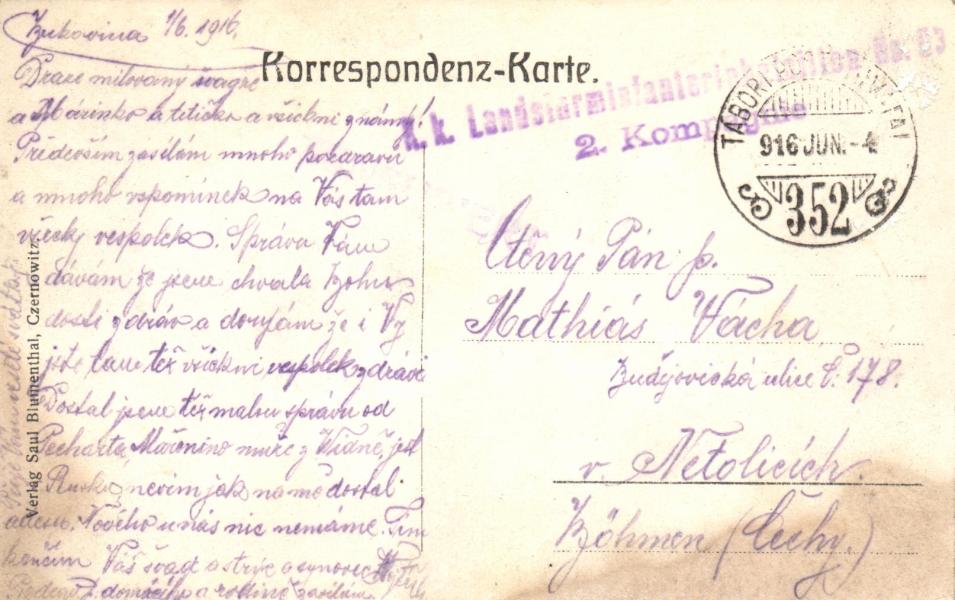 Bukovina 1/6. 1916.
Korrespondenz-Karte.
K. k. Landsturminfanteriebataillon No. 53
2. Kompagnie
TÁBORI
916 JUN. -4
352
Drazí milovaný švagře
a Mařinko a tetičko a všickni známý!
Předevšim zasílám mnoho pozdravu
a mnoho vzpomínek na Vás tam
všecky vespolek. Správu Vám
dávám že jsme chvala Bohu
dosti zdráv a doufám že i Vy
jste tam též všickni vespolek zdrávi
Dostal jsem též malou správu od
Pecharta, Mařenino muže z Vídně, jest
Rusko, nevím jak na mě dostal
adesu. Nového u nás nic nemáme. Tím
končím Váš švagr a strýc a synovec
a rodině zasílám
Verlag Saul Blumenthal, Czernowitz.
Ctěný Pán p.
Mathiás Vácha
Budějovická ulice Č. 178.
v Netolicích.
Böhmen (Čechy.)